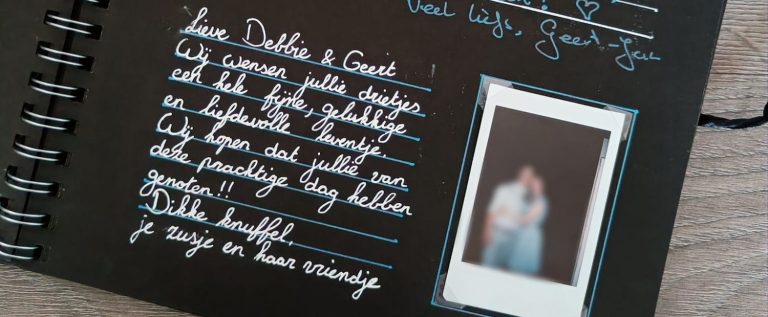 Veel liefs, Geert-Jan
Lieve Debbie & Geert
Wij wensen jullie drietjes
een hele fijne, gelukkige
en liefdevolle leventje.
Wij hopen dat jullie van
deze prachtige dag hebben
genoten!!
Dikke knuffel,
je zusje en haar vriendje